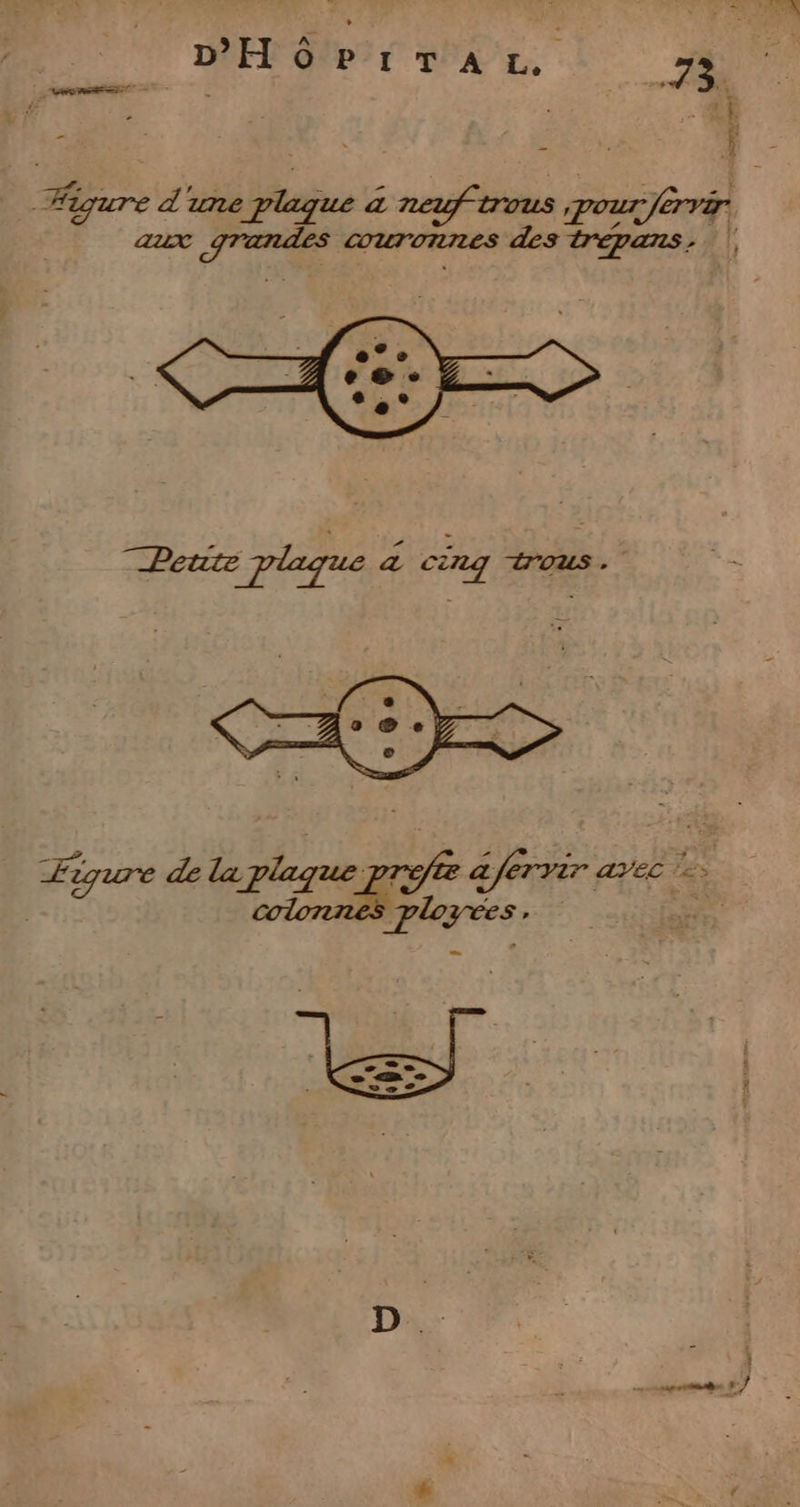 D'HÔPITAL. 73
Figure d'une plaque a neuf trous, pour ſervir
aux grandes couronnes des trépans.
Petite plaque a cinq trous.
Figure de la plaque preſte a ſervir avec les
colonnes ployées.
D